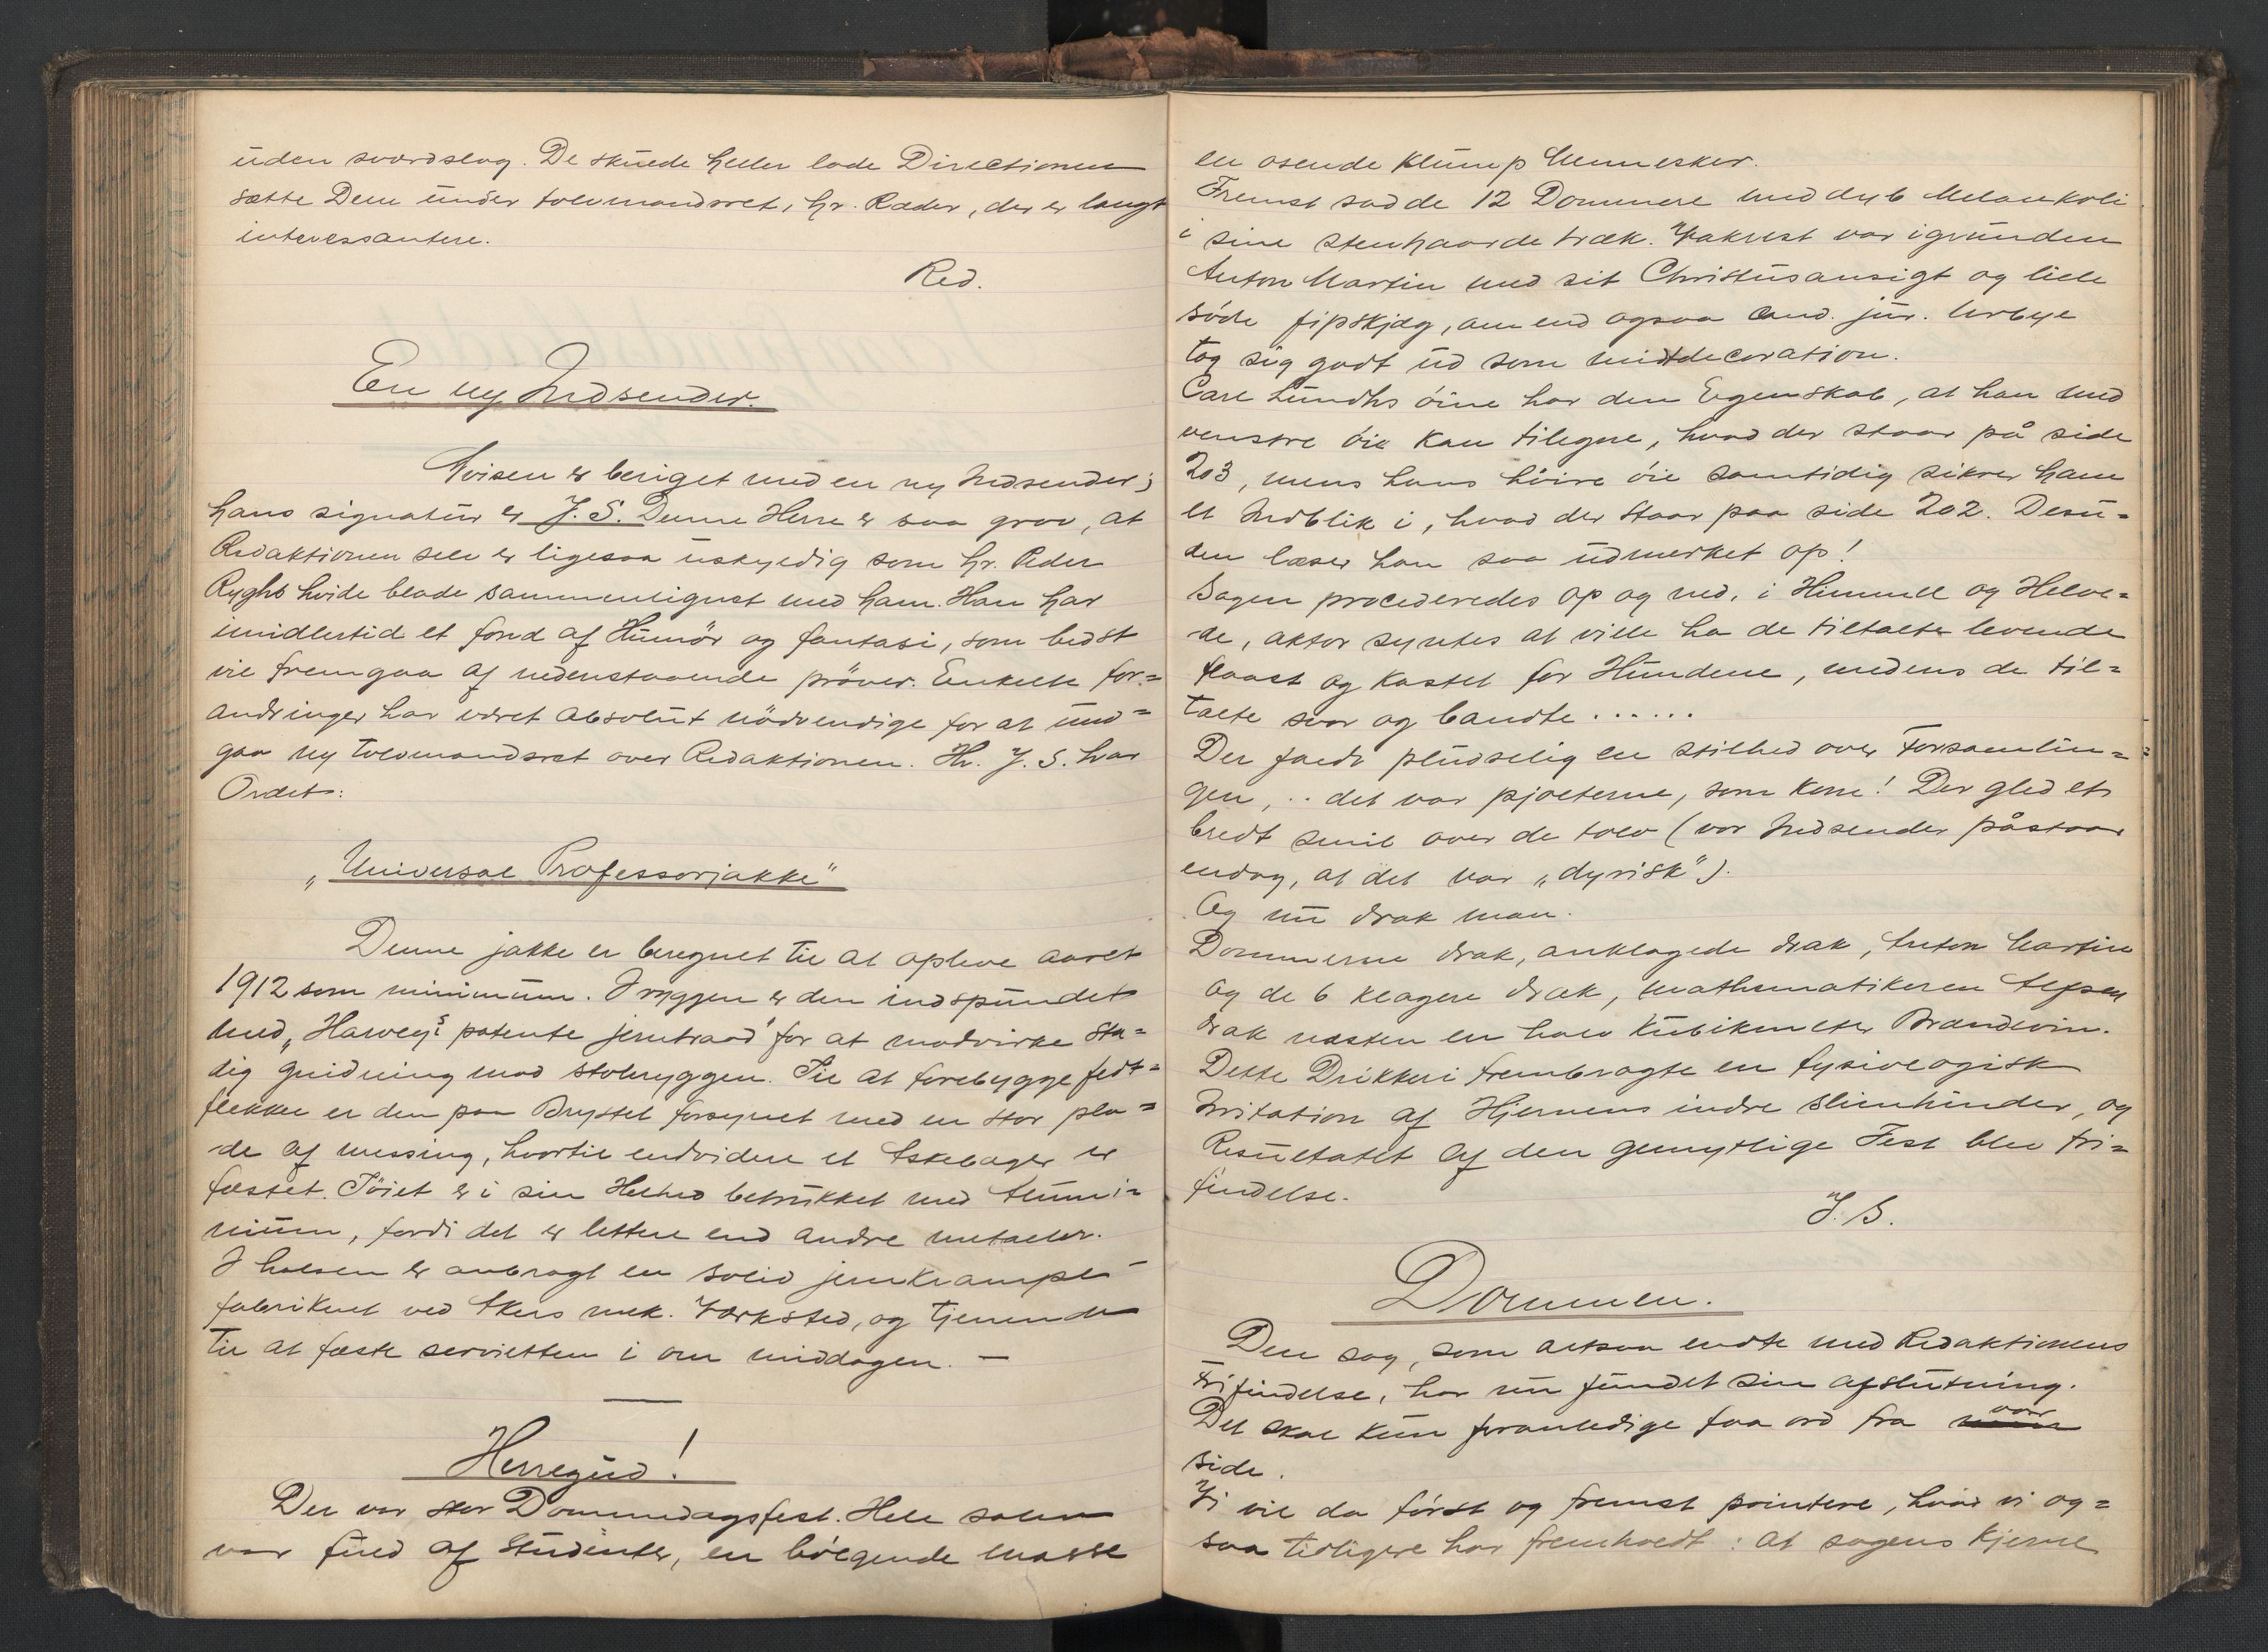 uden sværdslag. De skulde heller lade Directionen
sætte Dem under tolvmandsret, hr. Ræder, der er langt
interessantere.
Red.
En ny Indsender.
Avisen er beriget med en ny Indsender;
hans signatur er J. S. Denne Herre er saa grov, at
Redaktionen selv er ligesaa uskyldig som hr. Peder
Ryghs hvide blade sammenlignet med ham. Han har
imidlertid et fond af Humör og fantasi, som bedst
vil fremgaa af nedenstaaende pröver. Enkelte for=
andringer har været absolut nödvendige for at und=
gaa ny tolvmandsret over Redaktionen. Hr. J. S. har
Ordet:
„Universal Professorjakke"
Denne jakke er beregnet til at opleve aaret
1912 som minimum. I ryggen er den indspundet
med „Harvey's patente jerntraad" for at modvirke sta=
dig gnidning mod stolryggen. Til at forebygge fedt=
flekker er den paa Brystet forsynet med en stor pla=
de af messing, hvortil endvidere et Askebæger er
fæstet. Töiet er i sin Helhed betrukket med Alumi=
nium, fordi det er lettere end andre metaller.
I halsen er anbragt en solid jernkrampe
fabrikeret ved Akers mek. Værksted, og tjenende
til at fæste servietten i om middagen. —
Herregud!
Der var stor Dommedagsfest. Hele salen
var fuld af Studenter, en bölgende masse
en osende klump Mennesker.
Fremst sad de 12 Dommere med dyb Melankoli
i sine stenhaarde træk. Vakrest var igrunden
Anton Martin med sit Christusansigt og lille
söde fipskjæg, om end ogsaa cand. jur. Urbye
tog sig godt ud som midtdecoration.
Carl Lundhs öine har den Egenskab, at han med
venstre öie kan tilegne, hvad der staar på side
203, mens hans höire öie samtidig sikrer ham
et Indblik i, hvad der staar paa side 202. Desu=
den læser han saa udmerket op!
Sagen procederedes op og ned, i Himmel og Helve=
de, aktor syntes at ville ha de tiltalte levende
flaaet og kastet for Hundene, medens de til=
talte svor og bandte ......
Der faldt pludselig en stilhed over Forsamlin=
gen, .. det var pjolterne, som kom! Der gled et
bredt smil over de tolv (vor Indsender påstaar
endog, at det var „dyrisk").
Og nu drak man.
Dommerne drak, anklagede drak, Anton Martin
og de 6 klagere drak, mathematikeren Alfsen
drak næsten en halv Kubikmeter Brændevin.
Dette Drikkeri frembragte en fysiologisk
Irritation af Hjernens indre slimhinder, og
Resultatet af den gemytlige Fest blev fri=
findelse.
J. S.
Dommen.
Den sag, som altsaa endte med Redaktionens
Frifindelse, har nu fundet sin afslutning.
Det skal kun foranledige faa ord fra vor
side.
Vi vil da först og fremst pointere, hvad vi og=
saa tidligere har fremhævdt: at sagens kjerne